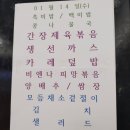 01월 14일(수)
흑미밥 / 백미밥
콩나물국
간장제육볶음
생선까스
카레덮밥
비엔나피망볶음
양배추/쌈장
모듬채소겉절이
김치
샐러드